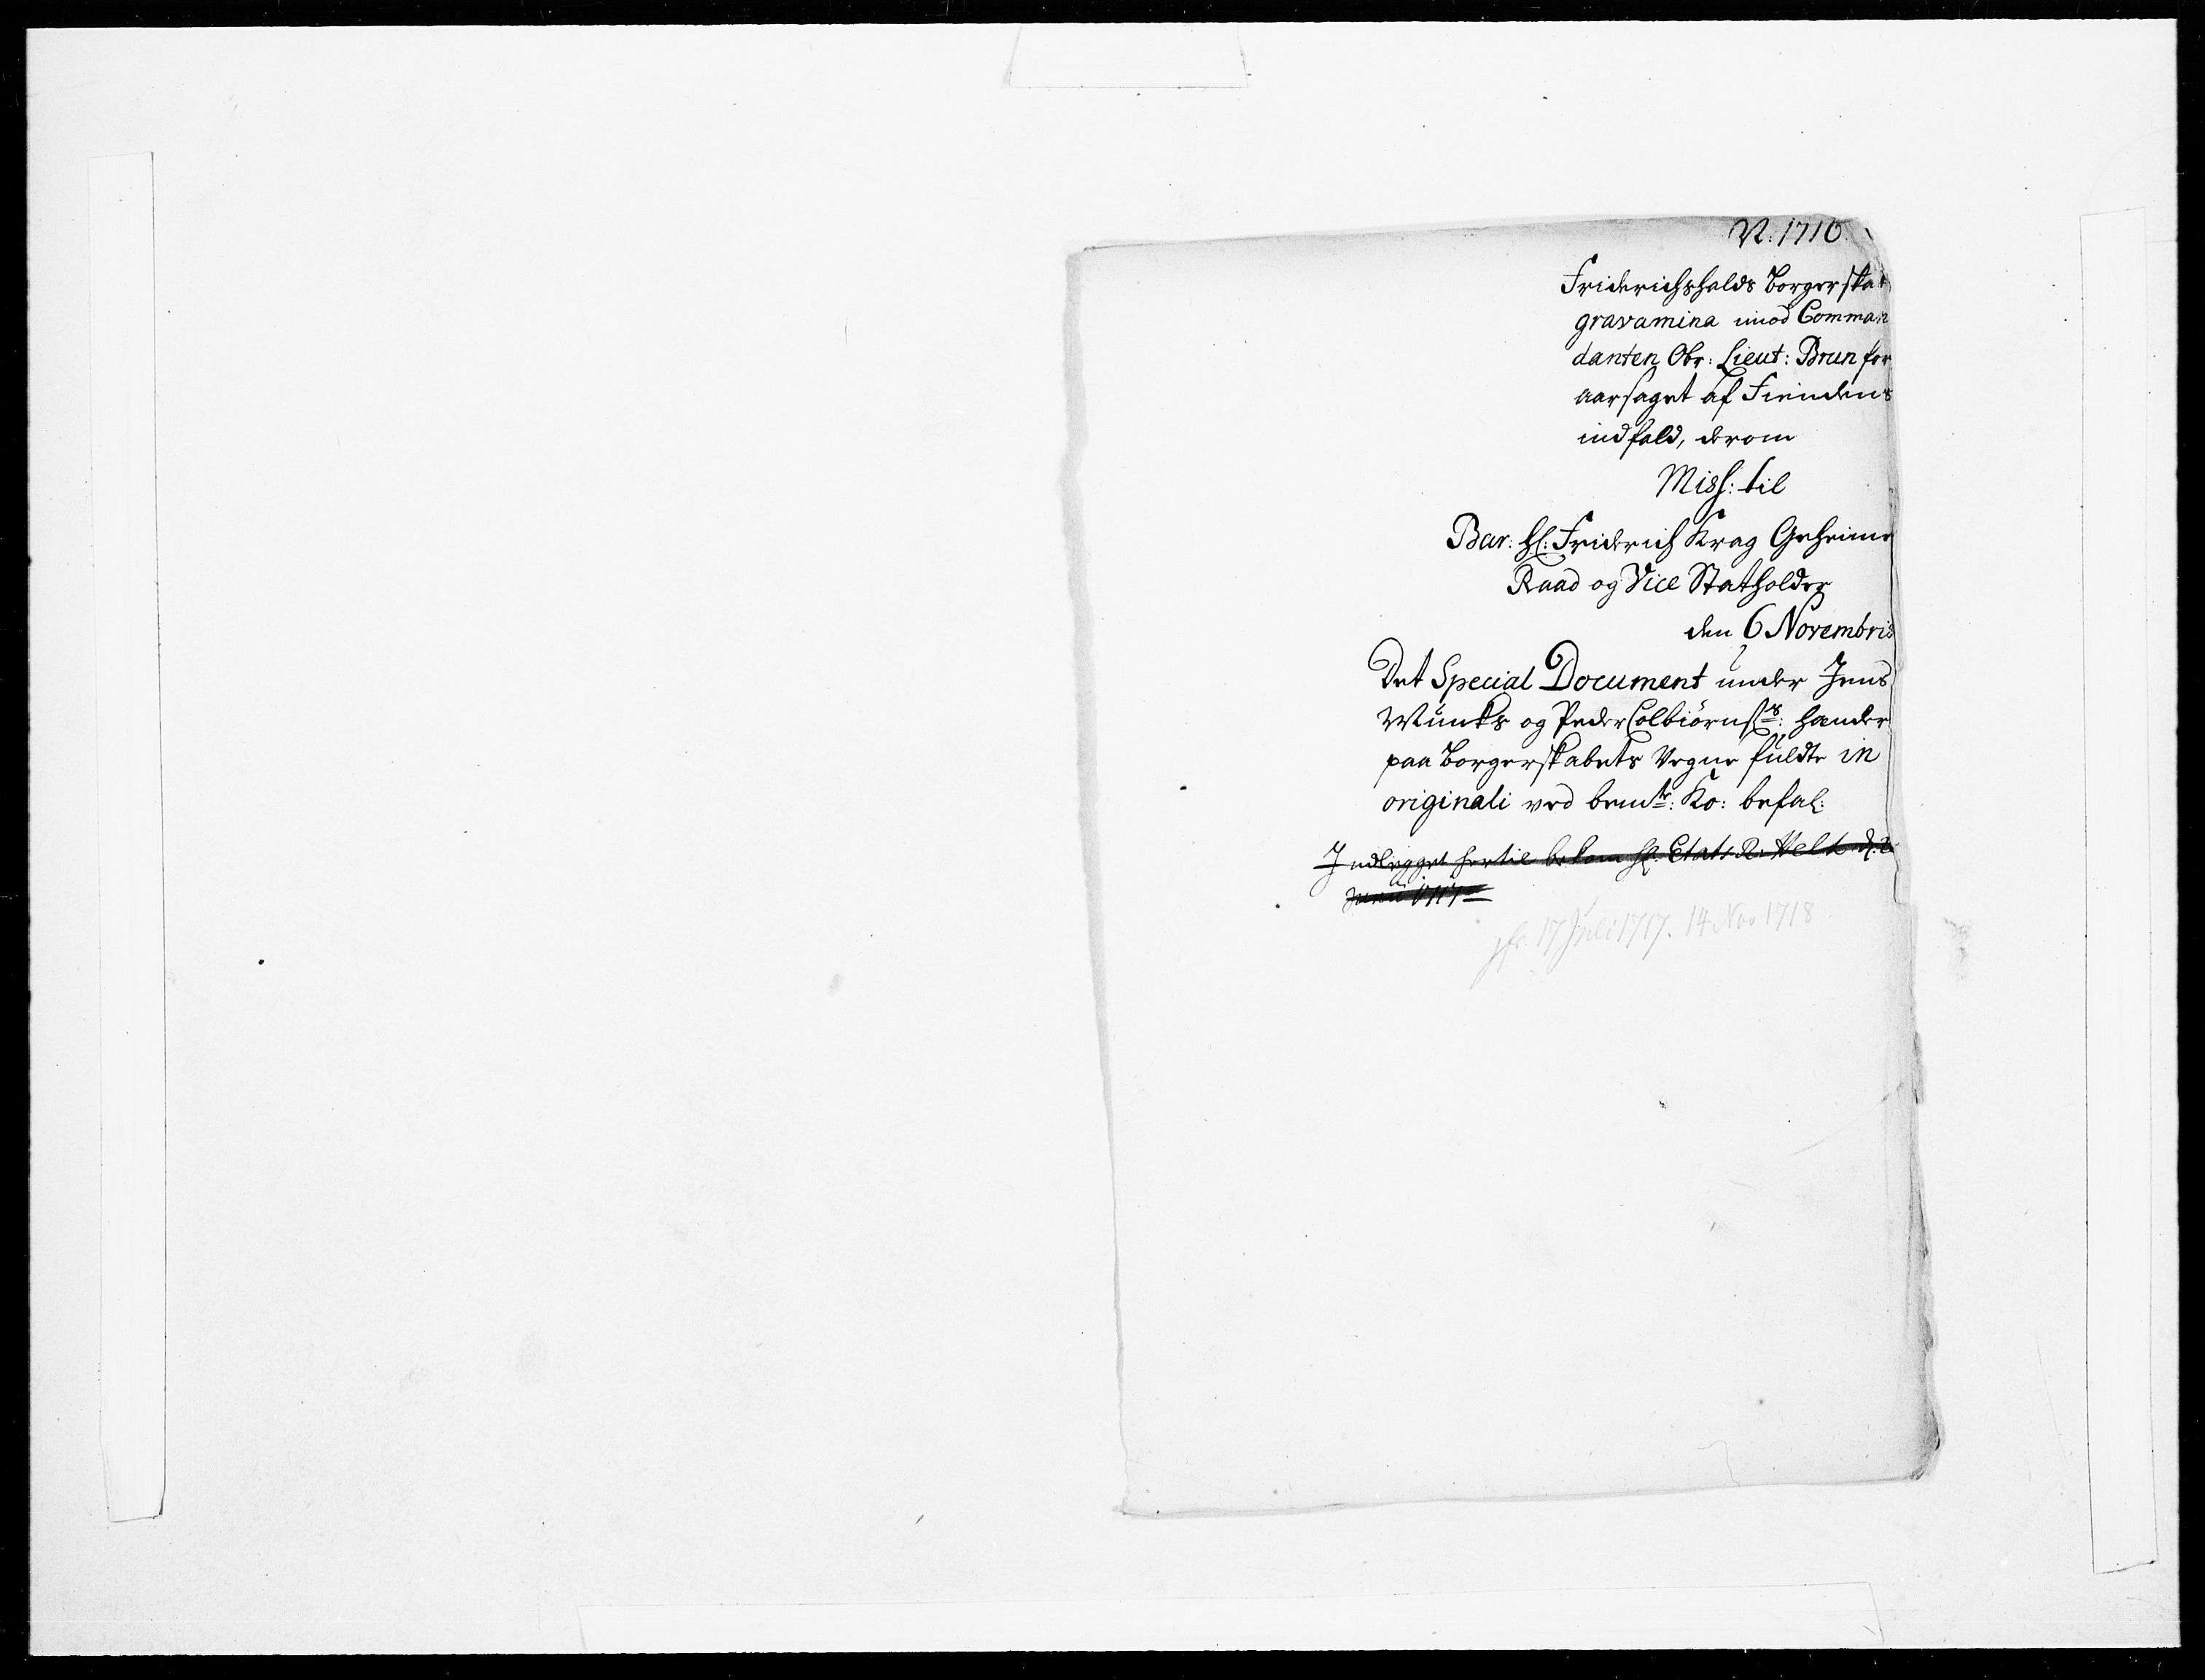 N: 1716
Friderichshalds Borgerskab
gravamina imod Comman
danten Obr: Lieut: Brun for
aarsaget af Fiendens
indfald, derom
Miss: til
Bar: Hl: Friderich Krag Geheime
Raad og Vice Statholder
den 6 Novembris
Det Special Document under Jens
Wüncks og Peder Colbiörnss: hænder
paa Borgerskabets Vegne fuldte in
originali ved bemte: Ko: befal:
Indlegget hertil bekom Hl: Etats R:
Junii 1717
jfr. 17 Juli 1717. 14 Nov 1718